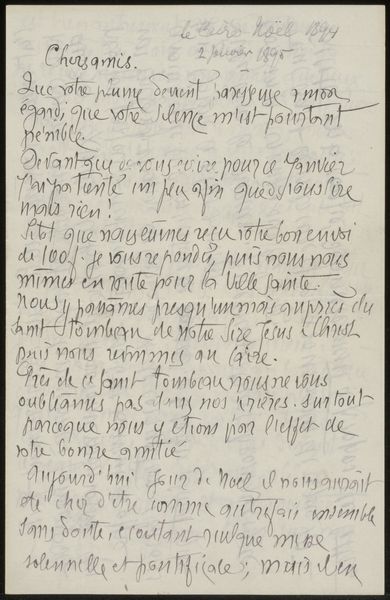 le Caire Noël 1894
2 janvier 1895
Chers amis.
Que votre plume devient paresseuse à mon
égard, que votre silence m'est pourtant
pénible
Devant que de vous écrire pour ce Janvier
J'ai patienté un peu afin que de vous lire
mais rien!
Sitôt que nous eûmes reçu votre bon envoi
de 100f. je vous répondis, puis nous nous
mîmes en route pour la Ville Sainte.
Nous y passâmes presqu'un mois auprès du
saint Tombeau de notre Sire Jésus Christ
puis nous vînmes au Caire.
Près de ce saint tombeau nous ne vous
oubliâmes pas dans nos prières. surtout
parceque nous y étions par l'effet de
votre bonne amitié
Aujourd'hui jour de Noël il nous aurait
été cher d'être comme autrefois ensemble
sans doute, écoutant quelque messe
solennelle et pontificale; mais